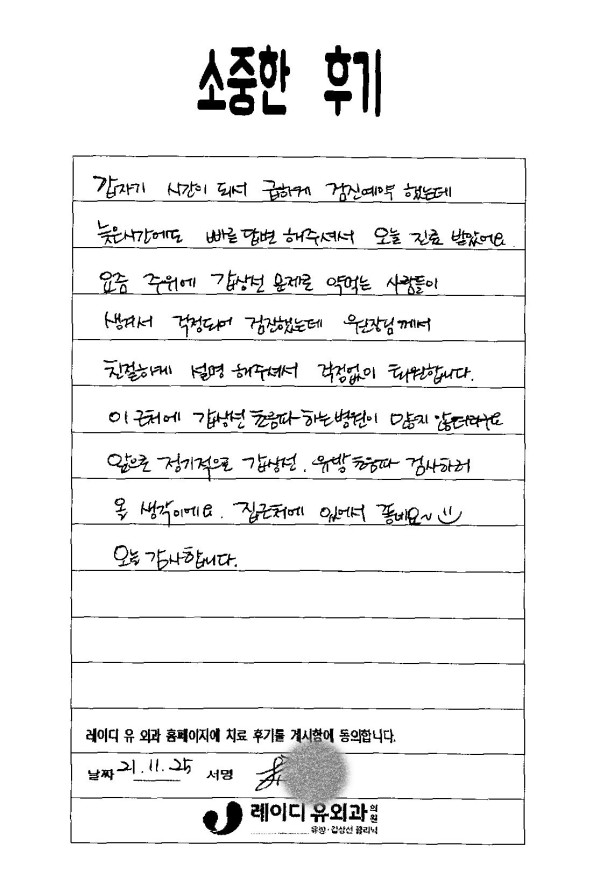 소중한 후기
갑자기 시간이 되서 급하게 검진예약 했는데
늦은시간에도 빠른 답변 해주셔서 오늘 진료 받았어요.
요즘 주위에 갑상선 문제로 약먹는 사람들이
생겨서 걱정되어 검진했는데 우원장님께서
친절하게 설명 해주셔서 걱정없이 퇴원합니다.
이 근처에 갑상선 초음파 하는병원이 많지 않더라구요
앞으로 정기적으로 갑상선, 유방 초음파 검사하러
올 생각이에요. 집근처에 있어서 좋네요~
오늘 감사합니다.
레이디 유 외과 홈페이지에 치료 후기를 게시함에 동의합니다.
날짜 21.11.25 서명
레이디 유외과의원
유방·갑상선 클리닉